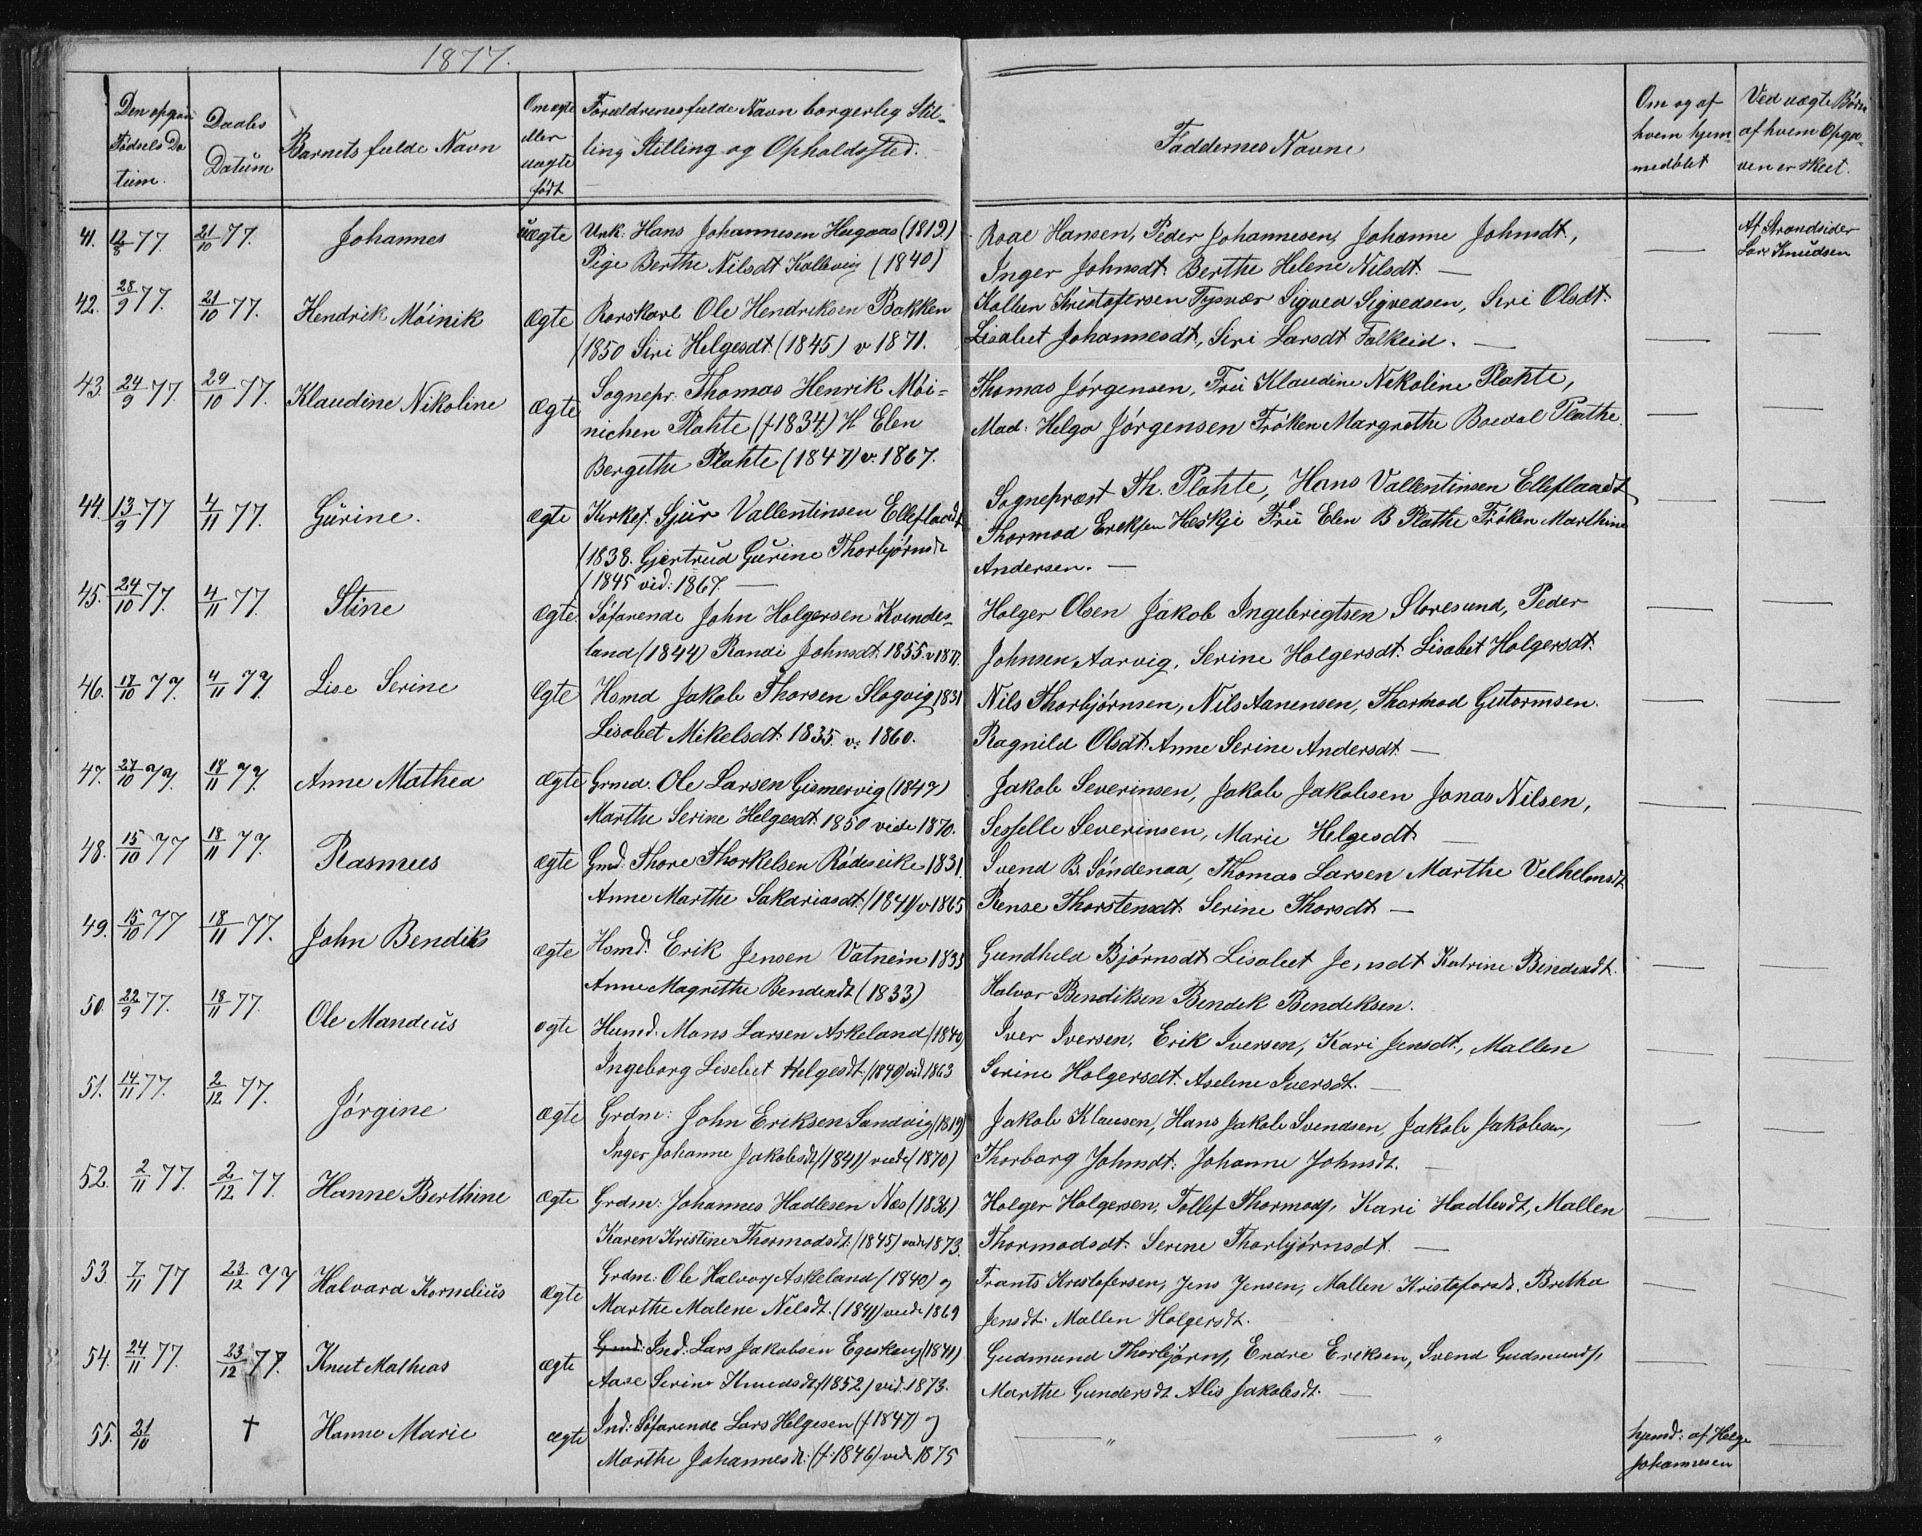 1877.
Den opgivne Fødsels Datum.
Daabs Datum
Barnets fulde Navn
Om ægte eller uægte født
Forældrenes fulde Navn borgerleg Stilling Stilling og Opholdssted.
Faddernes Navne
Om og af hvem hjemmedøbt
Ved uægte Børn af hvem Opgaven er skeet.
41. 12/8 77 21/10 77. Johannes uægte Unk: Hans Johannesen Hagaas (1819) Roal Hansen, Peder Johannesen, Johanne Johnsdt, — Af Strandsider
Pige Berthe Nilsdt Kallevig (1840) Inger Johnsdt. Berthe Helene Nilsdt. — Lars Knudsen
42. 28/9 77. 21/10 77. Hendrik Möinik Ægte Rorskarl Ole Hendriksen Bakken Kolben Kristofersen Tysvær Sigved Sigvedsen, Siri Olsdt. — —
(1850 Siri Helgesdt (1845) v 1871. Lisabet Johannesdt, Siri Larsdt Falkeid. —
43. 24/9 77 29/10 77. Klaudine Nikoline Ægte Sognepr: Thomas Henrik Möi- Thomas Jørgensen, Fru Klaudine Nikoline Plahte, — —
nichen Plahte (f 1834) H Elen Mad: Helga Jørgensen Frøken Margrethe Boedal Plathe.
Bergethe Plahte (1847) v. 1867.
44. 13/9 77 4/11 77. Gurine. Ægte Kirkes. Sjur Vallentinsen Elleflaadt Sognepræst Th. Plahte, Hans Vallentinsen Elleflaadt — —
(1838. Gjertrud Gurine Thorbjørnsdt Thormod Ereksen Heskje Frue Elen B Plathe Frøken Marthine
(1845 vid: 1867. — Andersen. —
45. 24/10 77. 4/11 77. Stine Ægte. Søfarende John Holgersen Kvindes- Holger Olsen Jakob Ingebrigtsen Storesund, Peder — —
land (1844) Randi Johnsdt 1855. v 1877. Johnsen Aarvig, Serine Holgersdt. Lisabet Holgersdt.
46. 17/10 77. 4/11 77. Lise Serine Ægte Hsmd Jakob Thorsen Slogvig 1831 Nils Thorbjørnsen, Nils Aanensen, Thormod Gutormsen. — —
Lisabet Mikelsdt. 1835. v: 1860. Ragnild Olsdt Anne Serine Andersdt —
47. 27/10 77. 18/11 77. Anne Mathea Ægte Grmd. Ole Larsen Gismervig (1847) Jakob Severinsen, Jakob Jakobsen Jonas Nilsen, — —
Marthe Serine Helgesdt. 1850 vide 1870. Sesselle Severinsen, Marie Helgesdt —
48. 15/10 77 18/11 77. Rasmus Ægte Gmd: Thore Thorkelsen Rødseike 1831. Svend B. Søndenaa, Thomas Larsen Marthe Velhelmsdt
Anne Marthe Sakariasdt (1841) v 1865 Rense Thorstensdt Serine Thorsdt —
49. 15/10 77 18/11 77. John Bendiks Ægte Hsmd. Erik Jensen Vatneim 1835 Gundhild Bjørnsdt Lisabet Jensdt Katrine Bindeksdt. — —
Anne Magrethe Bendeksdt (1833) Halvor Bendiksen Bendik Bendeksen.
50. 22/9 77. 18/11 77. Ole Mandius Ægte Husmd: Mons Larsen Askeland (1840) Iver Iversen, Erik Iversen, Kari Jensdt, Mallen — —
Ingeborg Lisebet Helgesdt (1840) vid 1863 Serine Holgersdt Aselene Iversdt. —
51. 14/11 77. 2/12 77. Jørgine Ægte Grdm: John Eriksen Sandvig (1819) Jakob Klausen, Hans Jakob Svendsen, Jakob Jakobsen, — —
Inger Johanne Jakobsdt (1841) viede (1870) Thorborg Johnsdt: Johanne Johnsdt. —
52. 2/11 77. 2/12 77. Hanne Berthine Ægte Grdm: Johannes Hadlesen Næs (1836) Holger Holgersen, Tollef Thormods, Kari Hadlesdt, Mallen — —
Karen Kristine Thormodsdt. (1845) vide 1873. Thormodsdt: Serine Thorbjørnsdt. —
53. 7/11 77 23/12 77 Halvard Kornelius Ægte Grdm: Ole Halvors Askeland (1840) og Frants Kristofersen, Jens Jensen, Mallen Kristofersdt. Bretha — —
Marthe Malene Nelsdt. (1841) viede 1869 Jensdt. Mallen Holgersdt.
54. 24/11 77. 23/12 77. Knut Mathias Ægte Gmd. Ind: Lars Jakobsen Egeskoug (1841) Gudmund Thorbjørns, Endre Eriksen, Svend Gudmunds, — —
Aase Serine Knudsdt (1852) vid. 1873. Marthe Gundersdt Alis Jakobsdt. —
55. 21/10 † Hanne Marie ægte Ind: Søfarende Lars Helgesen (f 1847) og — " — " hjemd: af Helge —
Marthe Johannesdt: (f. 1846) vid 1875 Johannesen